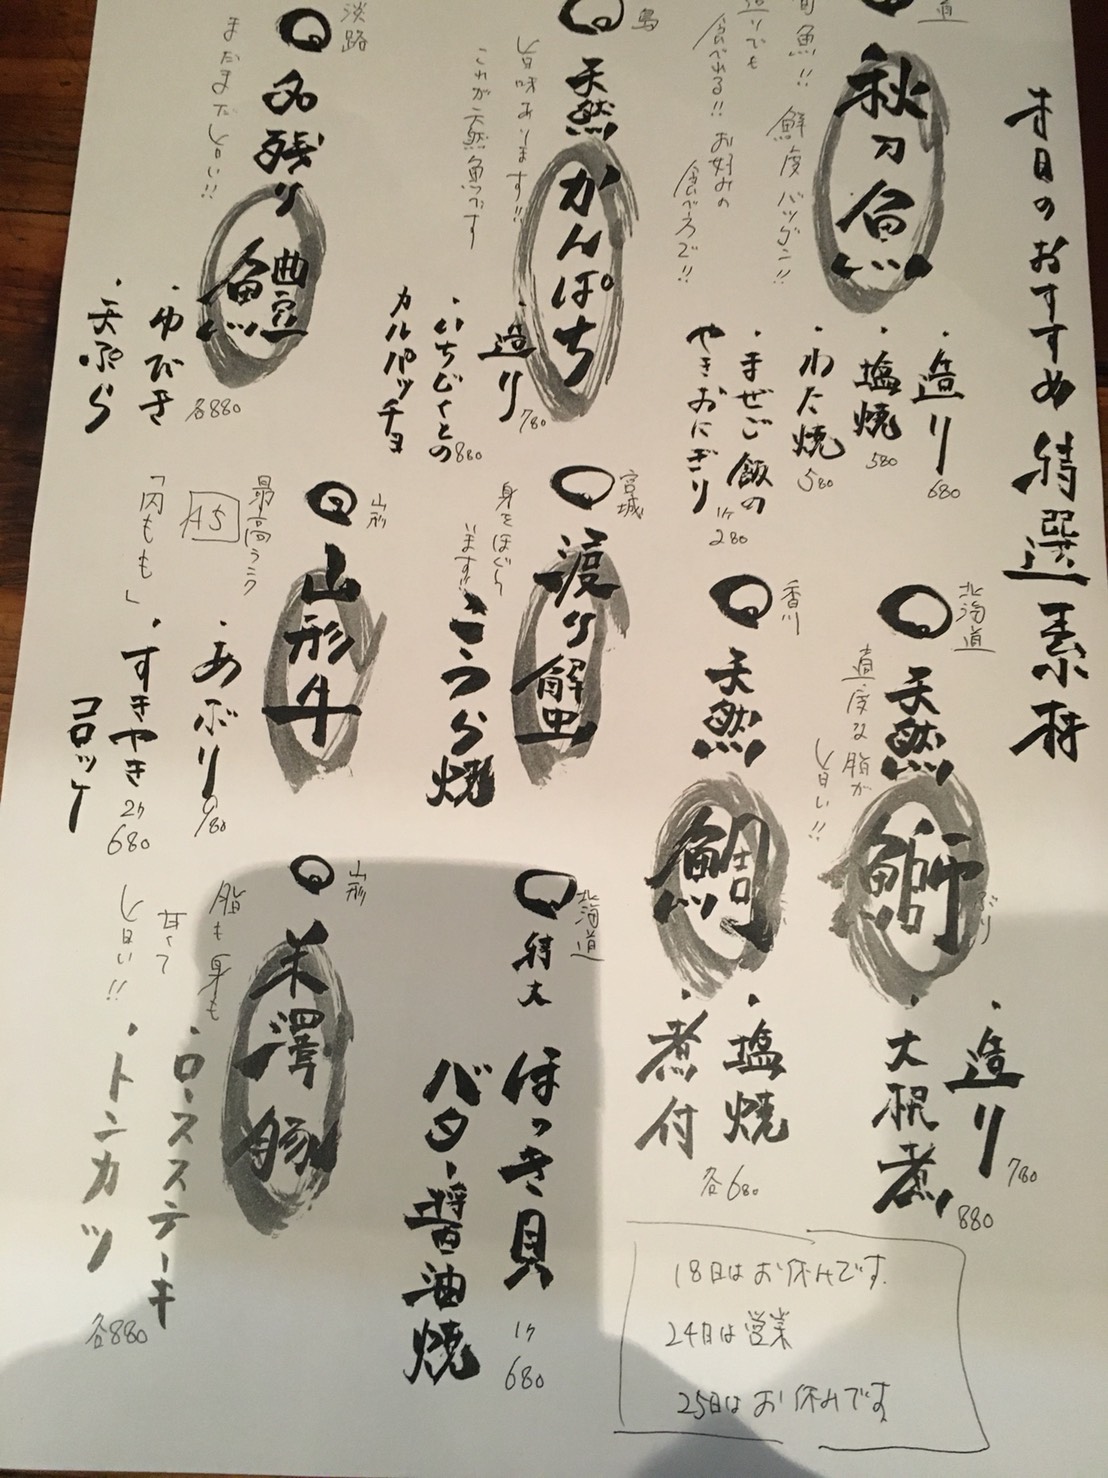 本日のおすすめ 特選素材
道
秋刀魚
旬魚!! 鮮度バツグン!!
造りでも
食べれる!! お好みの
食べ方で!!
・造り 680
・塩焼 580
・わた焼 580
・まぜご飯の
やきおにぎり 1ケ 280
島
天然 かんぱち
旨味あります!!
これが天然魚です
・造り 780
・いちじくとの
カルパッチョ 880
淡路
名残り 鱧
まだまだ旨い!!
・ゆびき
・天ぷら
各880
北海道
天然 鰤
ぶり
適度な脂が
旨い!!
・造り 780
・大根煮 880
香川
天然 鯛
・塩焼
・煮付
各680
宮城
渡り蟹
身をほぐして
います!!
こうら焼
山形
山形牛
最高ランク
A5
「内もも」
・あぶり 980
・すきやき
コロッケ 2ケ 680
北海道
特大 ほっき貝
バター醤油焼
1ケ 680
山形
米澤豚
脂も身も
甘くて
旨い!!
・ロースステーキ
・トンカツ
各880
18日はお休みです
24日は営業
25日はお休みです